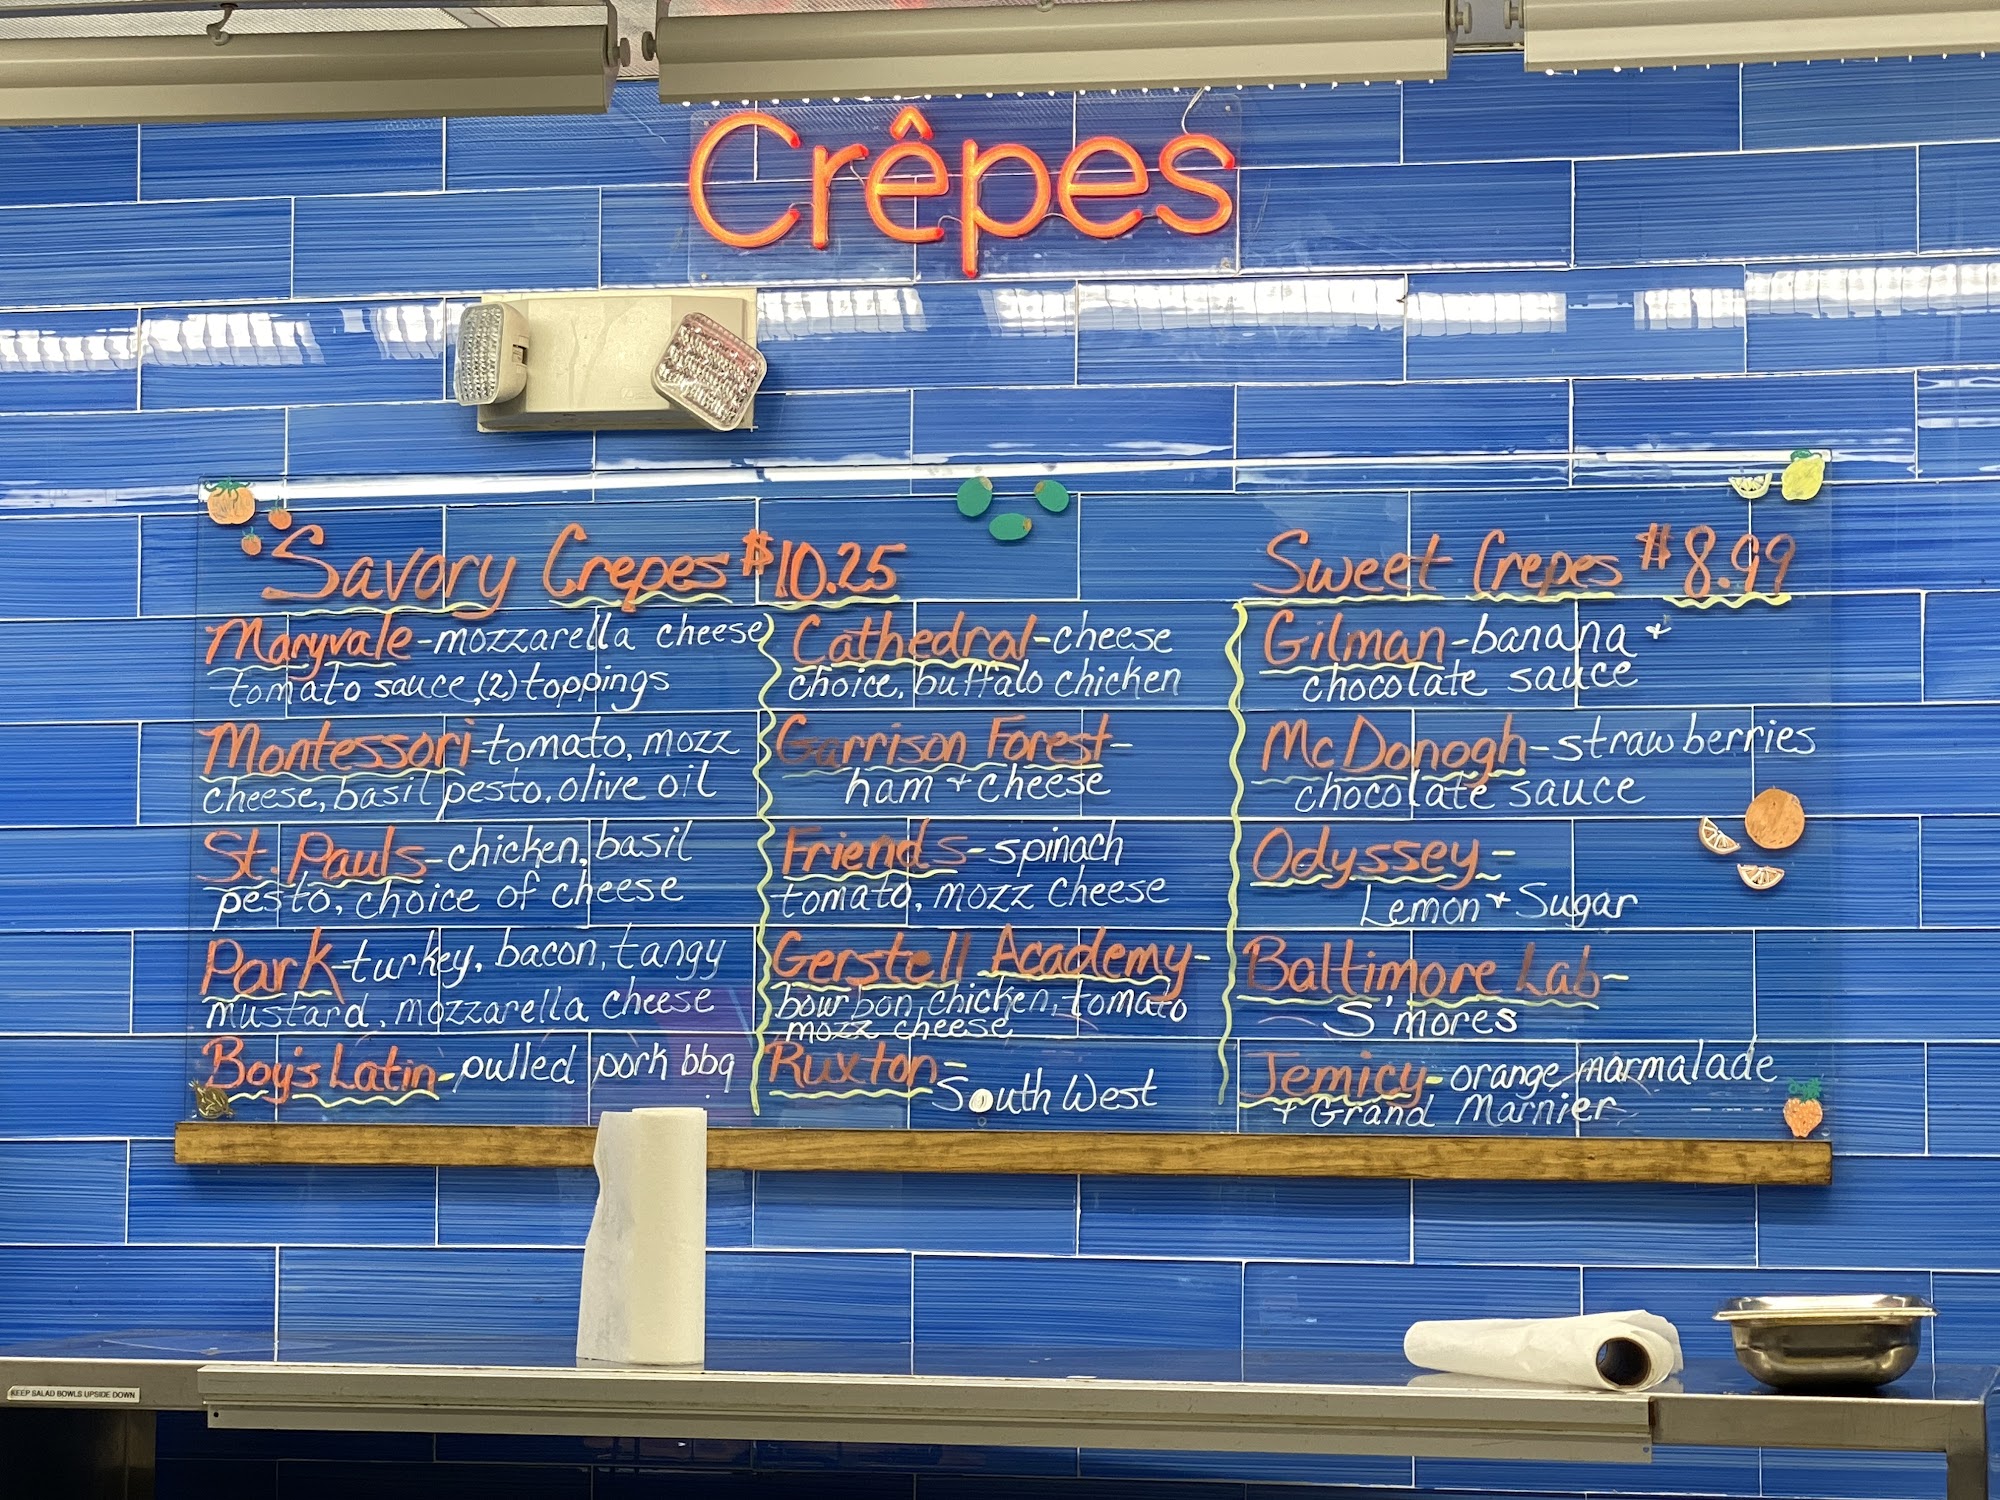 Crêpes
Savory Crepes $10.25
Maryvale-mozzarella cheese
tomato sauce,(2)toppings
Montessori-tomato, mozz
cheese, basil pesto, olive oil
St. Pauls-chicken, basil
pesto, choice of cheese
Park-turkey, bacon, tangy
mustard, mozzarella cheese
Boy's Latin-pulled pork bbq
Cathedral-cheese
choice, buffalo chicken
Garrison Forest-
ham + cheese
Friends-spinach
tomato, mozz cheese
Gerstell Academy-
bourbon chicken, tomato
mozz cheese
Ruxton-
South West
Sweet Crepes $8.99
Gilman-banana +
chocolate sauce
McDonogh-strawberries
chocolate sauce
Odyssey-
Lemon + Sugar
Baltimore Lab-
S'mores
Jemicy-orange marmalade
+ Grand Marnier
KEEP SALAD BOWLS UPSIDE DOWN